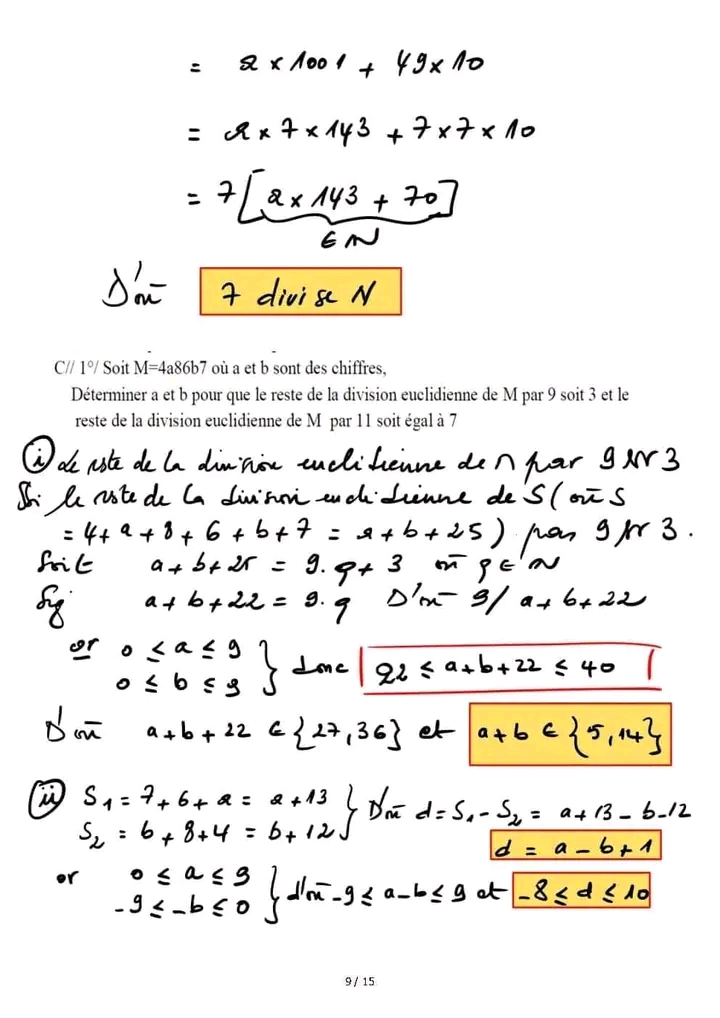 = a × 1001 + 49 × 10
= a × 7 × 143 + 7 × 7 × 10
= 7 [a × 143 + 70]
∈ IN
D'où 7 divise N
C// 1°/ Soit M=4a86b7 où a et b sont des chiffres,
Déterminer a et b pour que le reste de la division euclidienne de M par 9 soit 3 et le
reste de la division euclidienne de M par 11 soit égal à 7
(i) Le reste de la division euclidienne de M par 9 est 3
Ssi le reste de la division euclidienne de S (où S
= 4 + a + 8 + 6 + b + 7 = a + b + 25) par 9 est 3.
Soit a + b + 25 = 9.q + 3 où q ∈ IN
Sig a + b + 22 = 9.q D'où 9/ a + b + 22
or 0 ≤ a ≤ 9
0 ≤ b ≤ 9 } donc 22 ≤ a + b + 22 ≤ 40
D'où a + b + 22 ∈ {27, 36} et a + b ∈ {5, 14}
(ii) S₁ = 7 + 6 + a = a + 13
S₂ = b + 8 + 4 = b + 12 } D'où d = S₁ - S₂ = a + 13 - b - 12
d = a - b + 1
or 0 ≤ a ≤ 9
-9 ≤ -b ≤ 0 } d'où -9 ≤ a - b ≤ 9 et -8 ≤ d ≤ 10
9 / 15